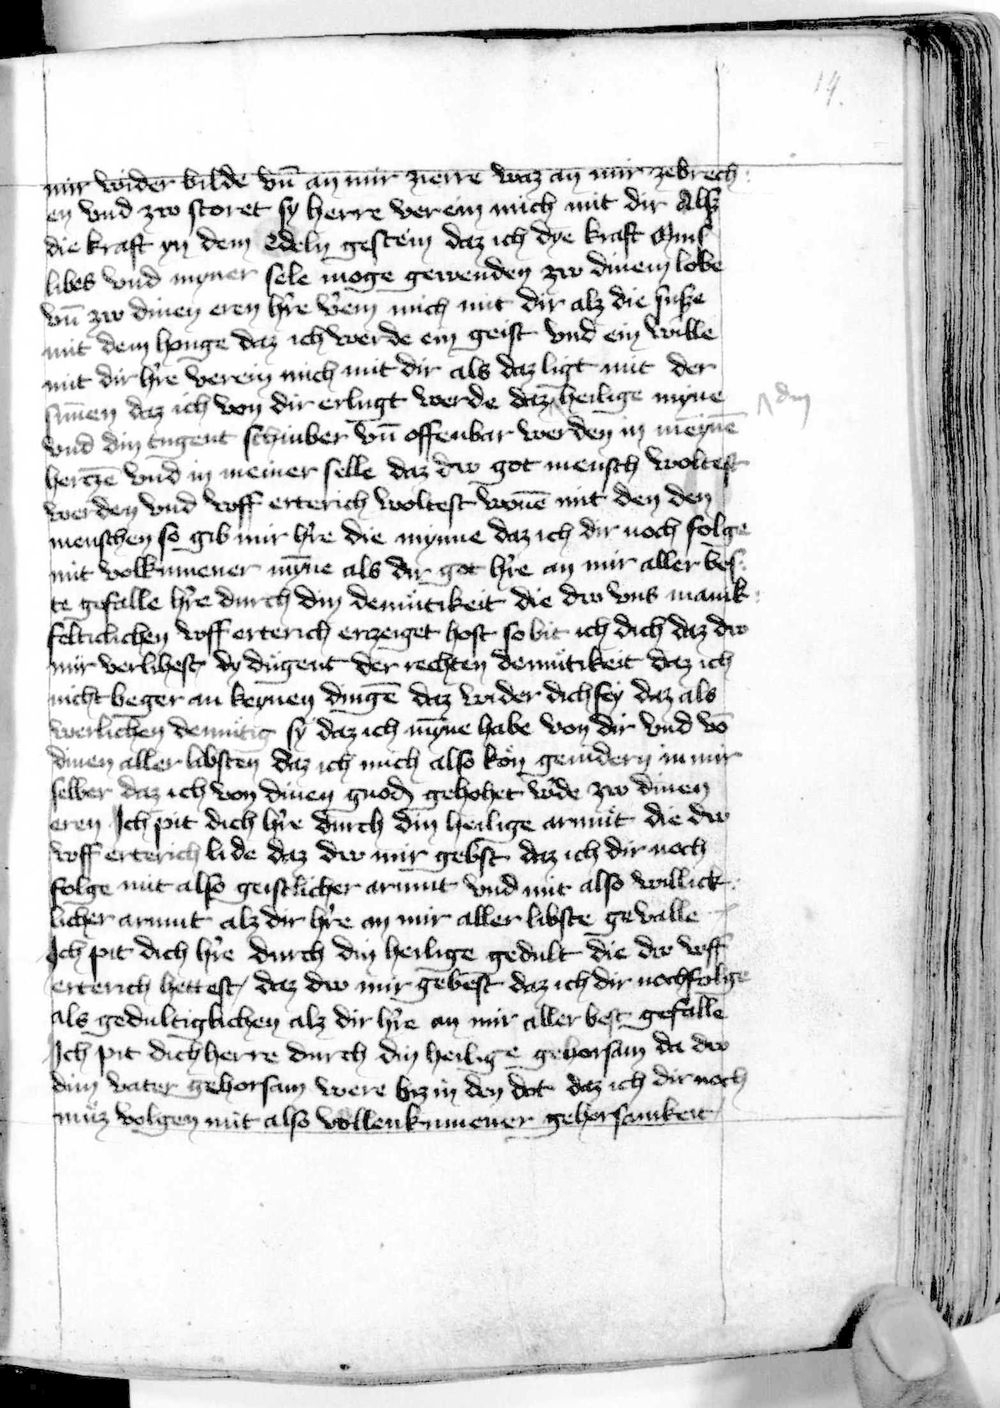 14.
mir wider bilde vn̄ an mir zierre waz an mir zebrech:
en vnd zwo storet sy herre verein mich mit dir Alß
die kraft yn dem edeln gestein daz ich dye kraft mins
libes vnd myner sele moge gewenden zwo dinem lobe
vn̄ zwo dinen eren hr̄e v̄ein mich mit dir alz die suſze
mit dem honge daz ich werde ein geist vnd ein wille
mit dir hr̄e verein mich mit dir als daz ligt mit der
sūnen daz ich von dir erlugt werde daz ⌃ heilige myne ⌃ din
vnd din tugent schinber vn̄ offenbar werden in meynē
hertzē vnd in meiner selle daz dw got mensch woltest
werden vnd vff erterich woltest wonē mit den den
menschen so gib mir hr̄e die mynne daz ich dir noch folge
mit volkumener mȳne als dir got hr̄e an mir aller bes:
te gefalle hr̄e durch din demütikeit die dw vns manik:
felticlichen vff erterich erzeiget host so bit ich dich daz dw
mir verlihest dy dügent der rechten demütikeit daz ich
nicht beger an keynen dingē daz wider dich sey daz als
werlichen demütig sy daz ich mȳne habe von dir vnd vō
dinen aller libsten daz ich mich also kön genidern in mir
selber daz ich von dinen gnod gehohet w̄de zwo dinen
eren Ich pit dich hr̄e durch din heilige armüt die dw
vff erterich lide daz dw mir gebst daz ich dir noch
folge mit also geistlicher armut vnd mit also willick:
licher armut alz dir hr̄e an mir aller libste gevalle
Ich pit dich hr̄e durch din heilige gedult die dw vff
erterich hettest daz dw mir gebest daz ich dir nochfolge
als gedultiglichen alz dir hr̄e an mir aller best gefalle
Ich pit dich herre durch din heilige gehorsam da dw
dim vater gehorsam were biz in den dot daz ich dir noch
müz volgen mit also vollenkumener gehorsamkeit